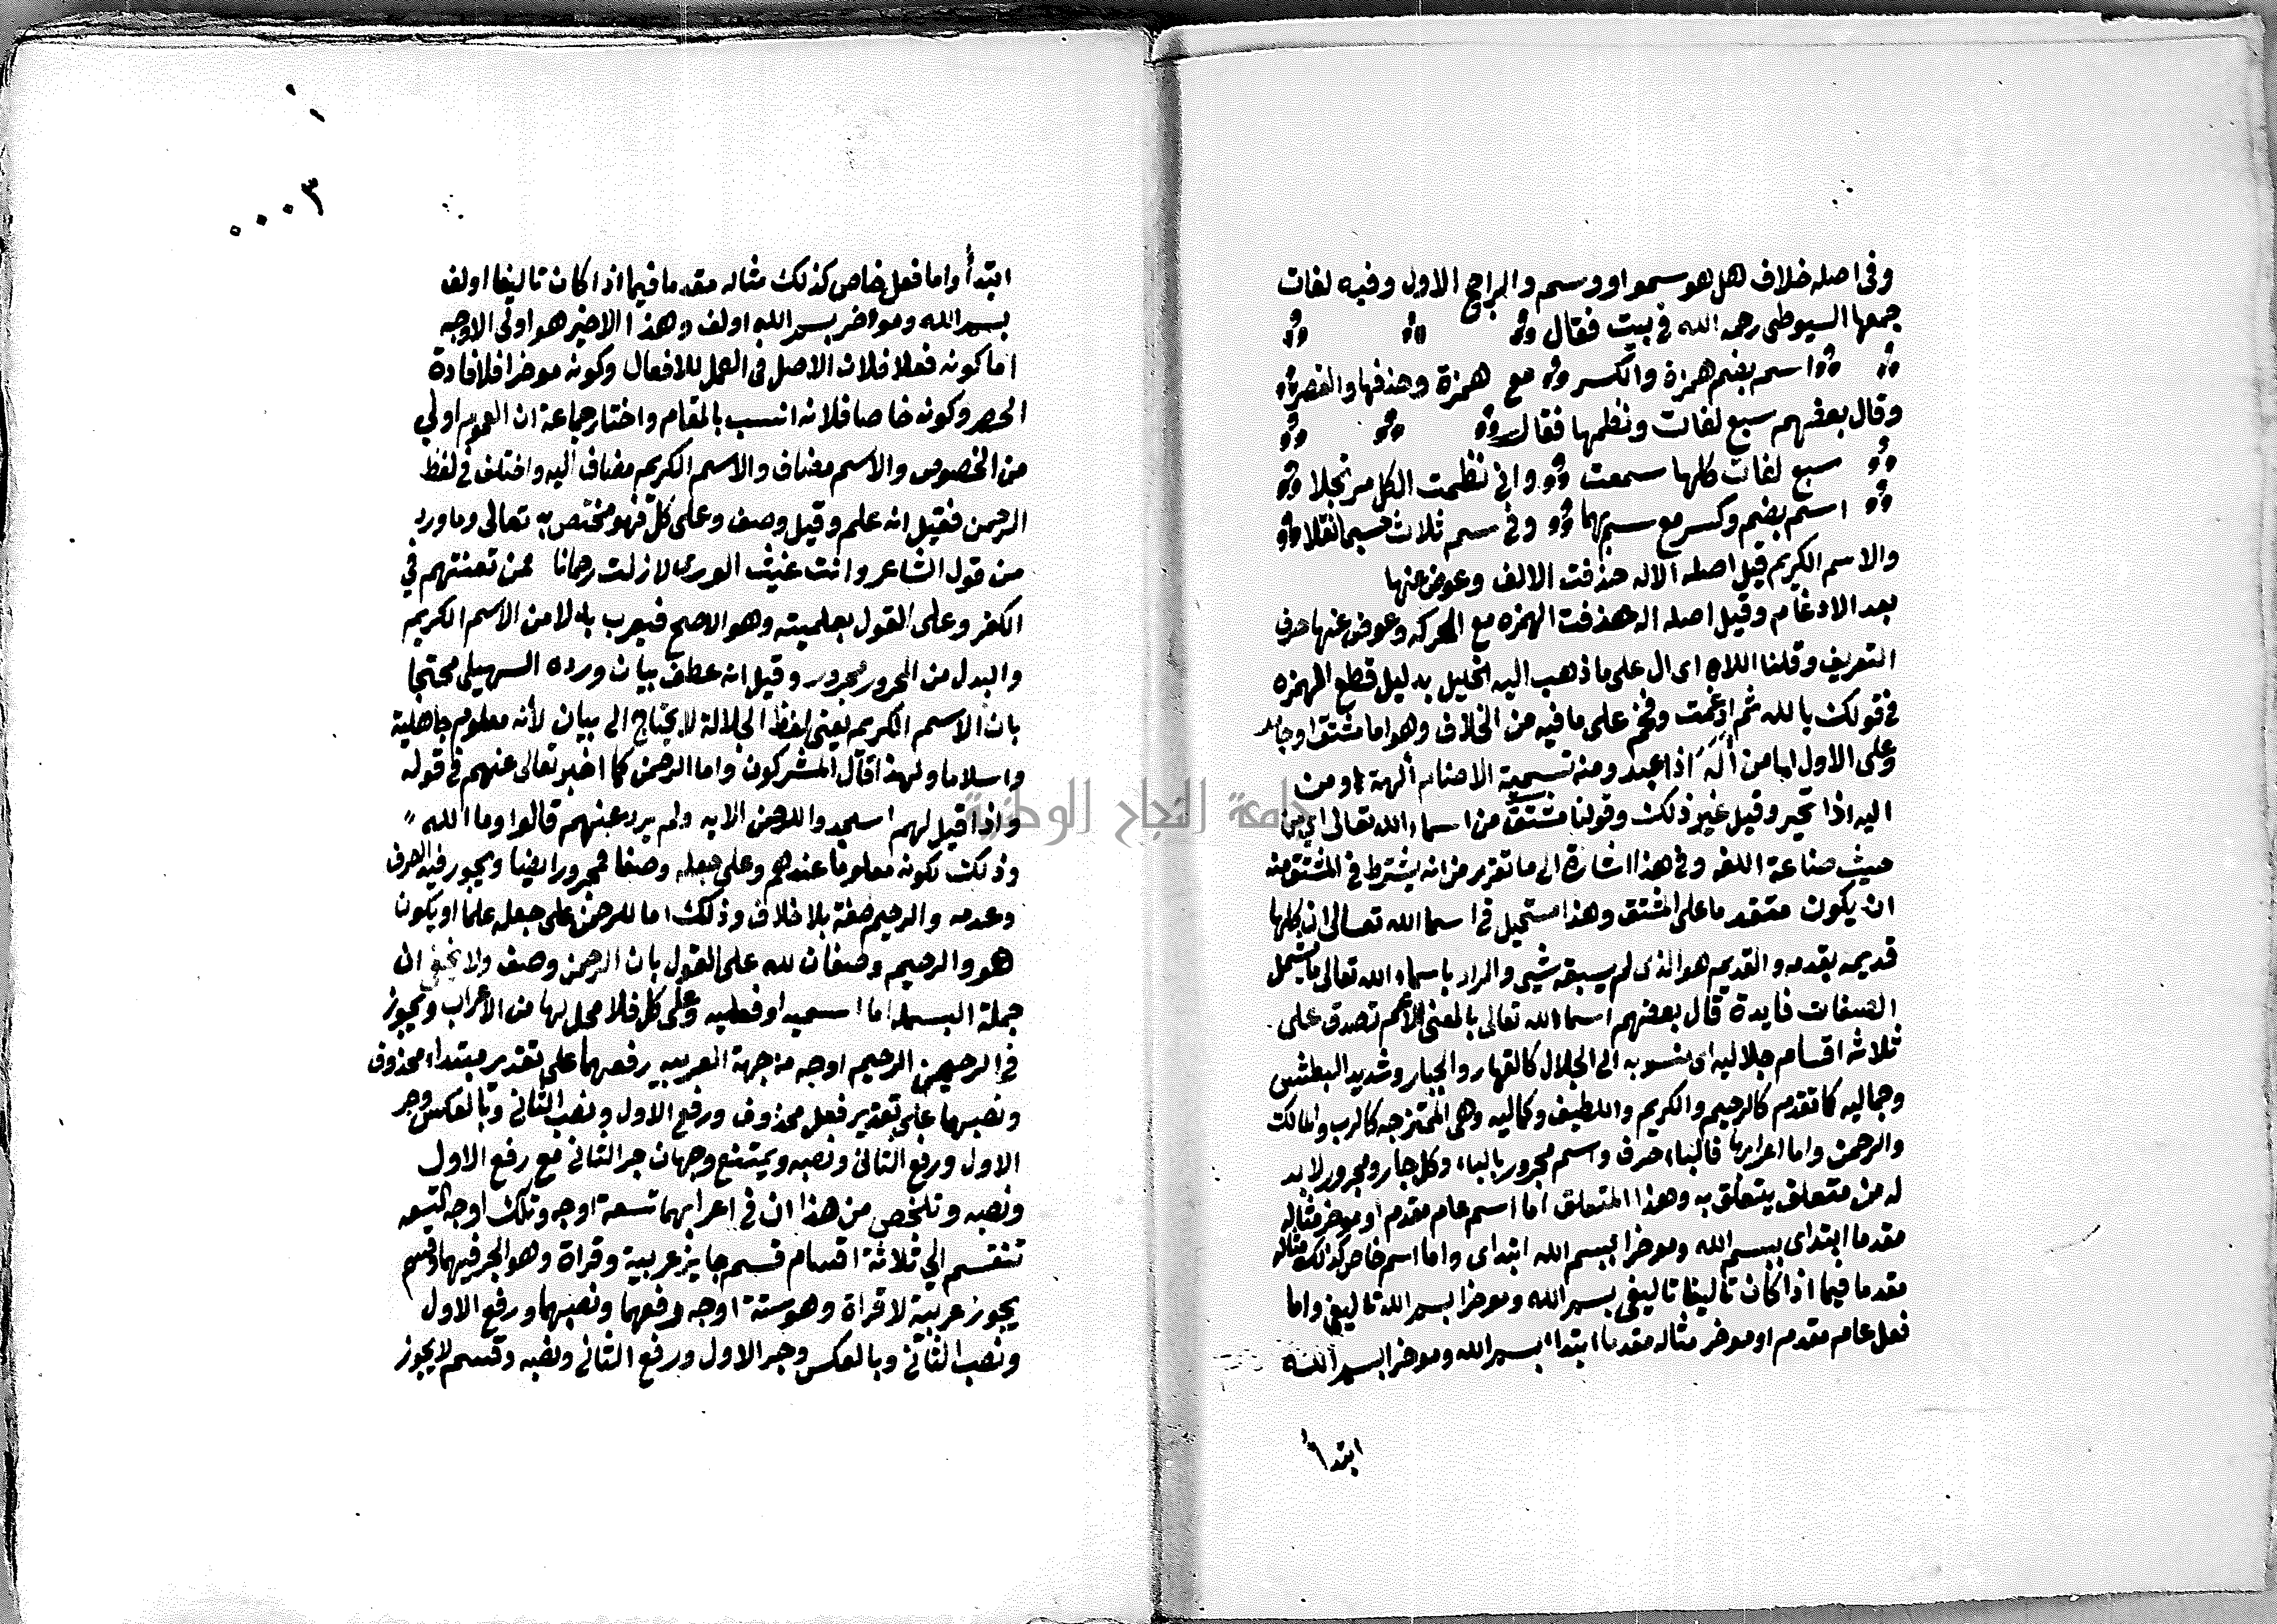 وفى اصله خلاف هل هو سمو او وسم والراجح الاول وفيه لغات
جمعها السيوطى رحمه الله فى بيت فقال
اسم بضم همزة والكسر مع همزة وحذفها والقصر
وقال بعضهم سبع لغات ونظمها فقال
سبع لغات كلها سمعت وانى نظمت الكل مرتجلا
اسم بضم وكسر مع سم بهما وفى سم ثلاث حسبما نقلا
والاسم الكريم قيل اصله الاله حذفت الالف وعوض عنها
بعد الادغام وقيل اصله اله حذفت الهمزه مع الحركه وعوض عنها حرف
التعريف وقلنا اللاه اى ال على ما ذهب اليه الخليل بدليل قطع الهمزه
فى قولك يا لله ثم ادغمت وفخم على ما فيه من الخلاف وهو اما مشتق او جامد
وعلى الاول اما من أله اذا عبد ومنه تسمية الاصنام ألهة او من
اليه اذا تحير وقيل غير ذلك وقولنا مشتق من اسماء الله تعالى اى من
حيث صناعة اللغه وفى هذا اشارة الى ما تقرر من انه يشترط فى المشتق منه
ان يكون متقدما على المشتق وهذا مستحيل فى اسما الله تعالى لان كلها
قديمه بقدمه والقديم هو الذى لم يسبقه شى والمراد باسماء الله تعالى ما يشمل
الصفات فايدة قال بعضهم اسما الله تعالى بالمعنى الاعم تصدق على
ثلاثه اقسام جلاليه اى منسوبه الى الجلال كالقهار والجبار وشديد البطش
وجماليه كما تقدم كالرحيم والكريم واللطيف وكماليه وهى الممتزجه كالرب والمالك
والرحمن واما اعرابها فالباء حرف واسم مجرور بالباء وكل جار ومجرور لا بد
له من متعلق يتعلق به وهذا المتعلق اما اسم عام مقدم او موخر مثاله
مقدما ابتداى بسم الله وموخرا بسم الله ابتداى واما اسم خاص كذلك مثاله
مقدما فيما اذا كان تاليفا تاليفى بسم الله وموخرا بسم الله تاليفى واما
فعل عام مقدم او موخر مثاله مقدما ابتدا بسم الله وموخرا بسم الله
ابتدأ
٠٠٠٣
ابتدأ واما فعل خاص كذلك مثاله مقدما فيما اذا كان تاليفا اولف
بسم الله وموخر بسم الله اولف وهذا الاخير هو اولى الاوجه
اما كونه فعلا فلان الاصل فى العمل للافعال وكونه موخرا فلافادة
الحصر وكونه خاصا فلانه انسب بالمقام واختار جماعة ان العموم اولى
من الخصوص والاسم مضاف والاسم الكريم مضاف اليه واختلف فى لفظ
الرحمن فقيل انه علم وقيل وصف وعلى كل فهو مختص به تعالى وما ورد
من قول الشاعر وانت غيث الورى لازلت رحمانا فمن تعنتهم فى
الكفر وعلى القول بعلميته وهو الاصح فيعرب بدلا من الاسم الكريم
والبدل من المجرور مجرور وقيل انه عطف بيان ورده السهيلى محتجا
بان الاسم الكريم يعنى لفظ الجلالة لا يحتاج الى بيان لأنه معلوم جاهلية
واسلاما ولهذا قال المشركون واما الرحمن كما اخبر تعالى عنهم فى قوله
واذا قيل لهم اسجدوا للرحمن الايه ولم يرد عنهم قالوا وما الله
وذلك لكونه معلوما عندهم وعلى جعله وصفا فمجرور ايضا ويجوز فيه الصرف
وعدمه والرحيم صفة بلا خلاف وذلك اما للرحمن على جعله علما او يكون
هو والرحيم وصفان لله على القول بان الرحمن وصف ولا يخفى ان
جملة البسمله اما اسميه او فعليه وعلى كل فلا محل لها من الأعراب ويجوز
فى الرحمن الرحيم اوجه من جهة العربيه رفعهما على تقدير مبتداء محذوف
ونصبهما على تقدير فعل محذوف ورفع الاول ونصب الثانى وبالعكس وجر
الاول ورفع الثانى ونصبه ويمتنع وجهان جر الثانى مع رفع الاول
ونصبه وتلخص من هذا ان فى اعرابهما تسعة اوجه وتلك اوجه التسعه
تنقسم الى ثلاثة اقسام قسم جايز عربية وقراة وهو الجر فيهما وقسم
يجوز عربية لا قراة وهو ستة اوجه رفعهما ونصبهما ورفع الاول
ونصب الثانى وبالعكس وجر الاول ورفع الثانى ونصبه وقسم لا يجوز
جامعة النجاح الوطنية